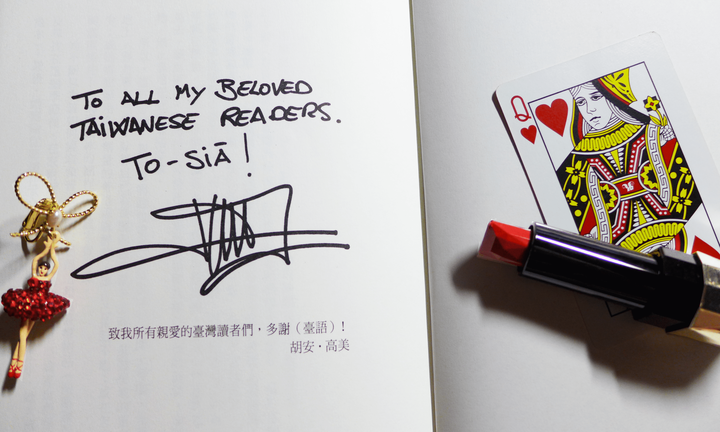 TO ALL MY BELOVED
TAIWANESE READERS.
TO-SIĀ!
致我所有親愛的臺灣讀者們，多謝（臺語）！
胡安・高美
Q